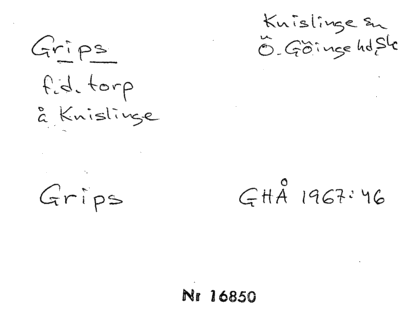 Grips
f.d. torp
å Knislinge
Knislinge sn
Ö. Göinge hd, Sk
Grips
GHÅ 1967: 46
Nr 16850